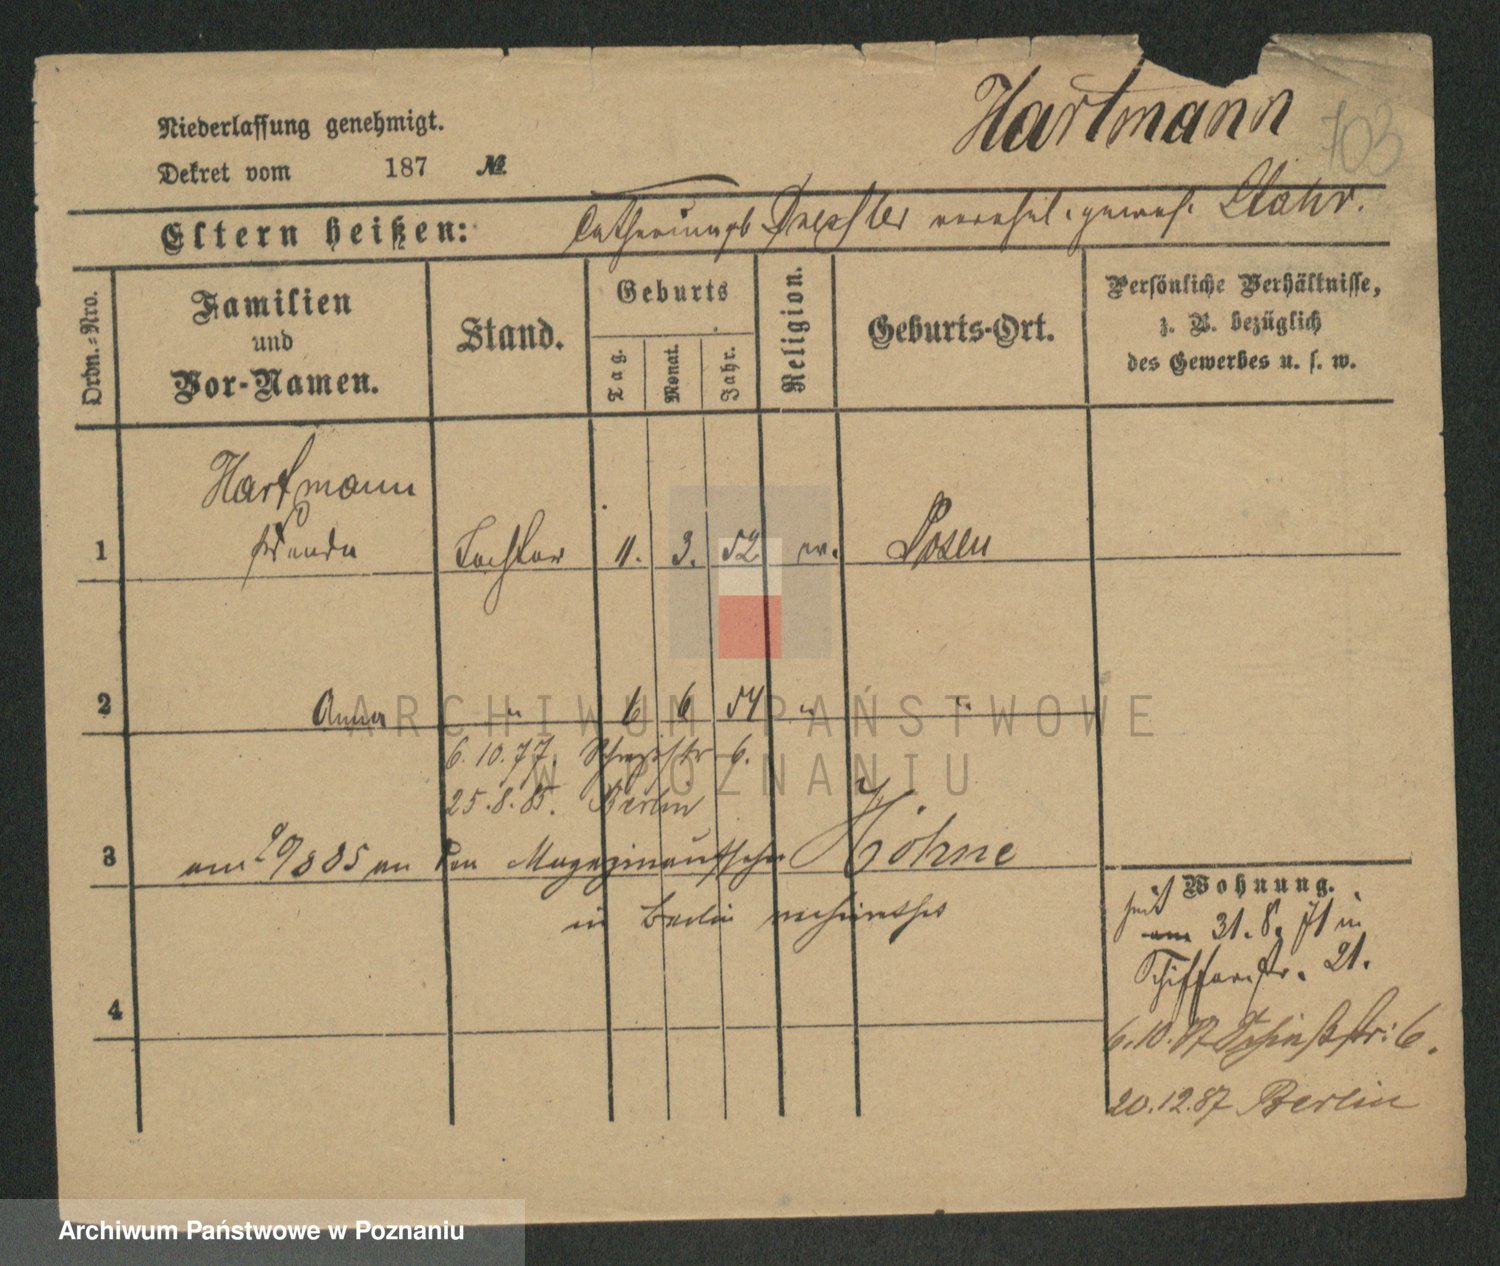 Hartmann
703
Niederlassung genehmigt.
Dekret vom 187 №
Eltern heißen: Catharina geb Drechsler verehel. gewes.
Ordn.-Nro.
Familien und Vor-Namen.
Stand.
Geburts
Tag.
Monat.
Jahr.
Religion.
Geburts-Ort.
Persönliche Verhältnisse,
z. B. bezüglich
des Gewerbes u. s. w.
Hartmann
1 Wanda Tochter 11. 3. 52 ev. Posen
2 Anna " 6 6 54 " "
6. 10. 77. 6.
25. 8. 85. Berlin
3 am 29/8 85 an den Magazinaufseher Höhne
in Berlin verheirathet
4
Wohnung.
seit
am 31. 8. 71 in
Schifferstr. 21.
6. 10. 87 Schießstr: 6.
20. 12. 87 Berlin
ARCHIWUM PAŃSTWOWE
W POZNANIU
Archiwum Państwowe w Poznaniu